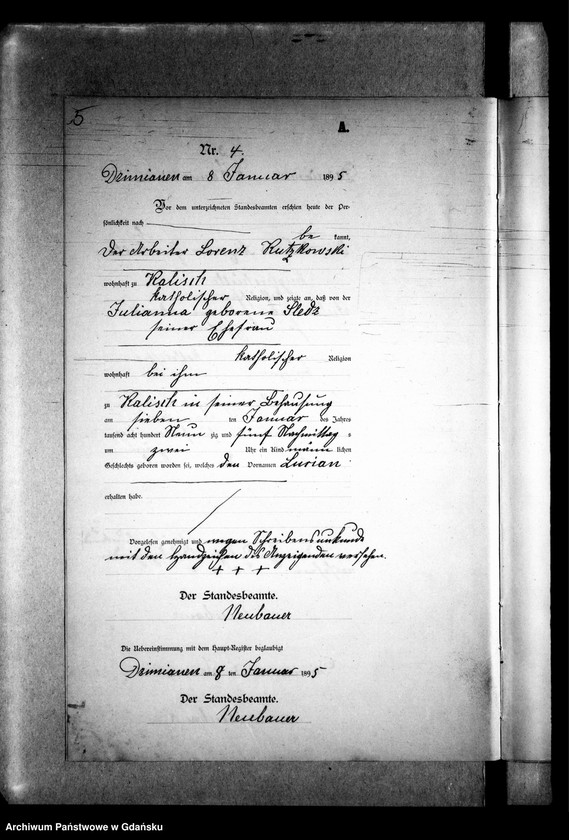 5
A.
Nr. 4.
Dzimianen am 8 Januar 1895
Vor dem unterzeichneten Standesbeamten erschien heute der Per-
sönlichkeit nach
be kannt,
Der Arbeiter Lorenz Rutzkowski
wohnhaft zu Kalisch
katholischer Religion, und zeigte an, daß von der
Julianna geborene Sledz
seiner Ehefrau
katholischer Religion
wohnhaft bei ihm
zu Kalisch in seiner Behausung
am sieben ten Januar des Jahres
tausend acht hundert Neun zig und fünf Nachmittag s
um zwei Uhr ein Kind männ lichen
Geschlechts geboren worden sei, welches den Vornamen Lucian
erhalten habe.
Vorgelesen genehmigt und wegen Schreibensunkunde
mit den Handzeichen des Anzeigenden versehen.
+ + +
Der Standesbeamte.
Neubauer
Die Uebereinstimmung mit dem Haupt-Register beglaubigt
Dzimianen am 8 ten Januar 1895
Der Standesbeamte.
Neubauer
Archiwum Państwowe w Gdańsku